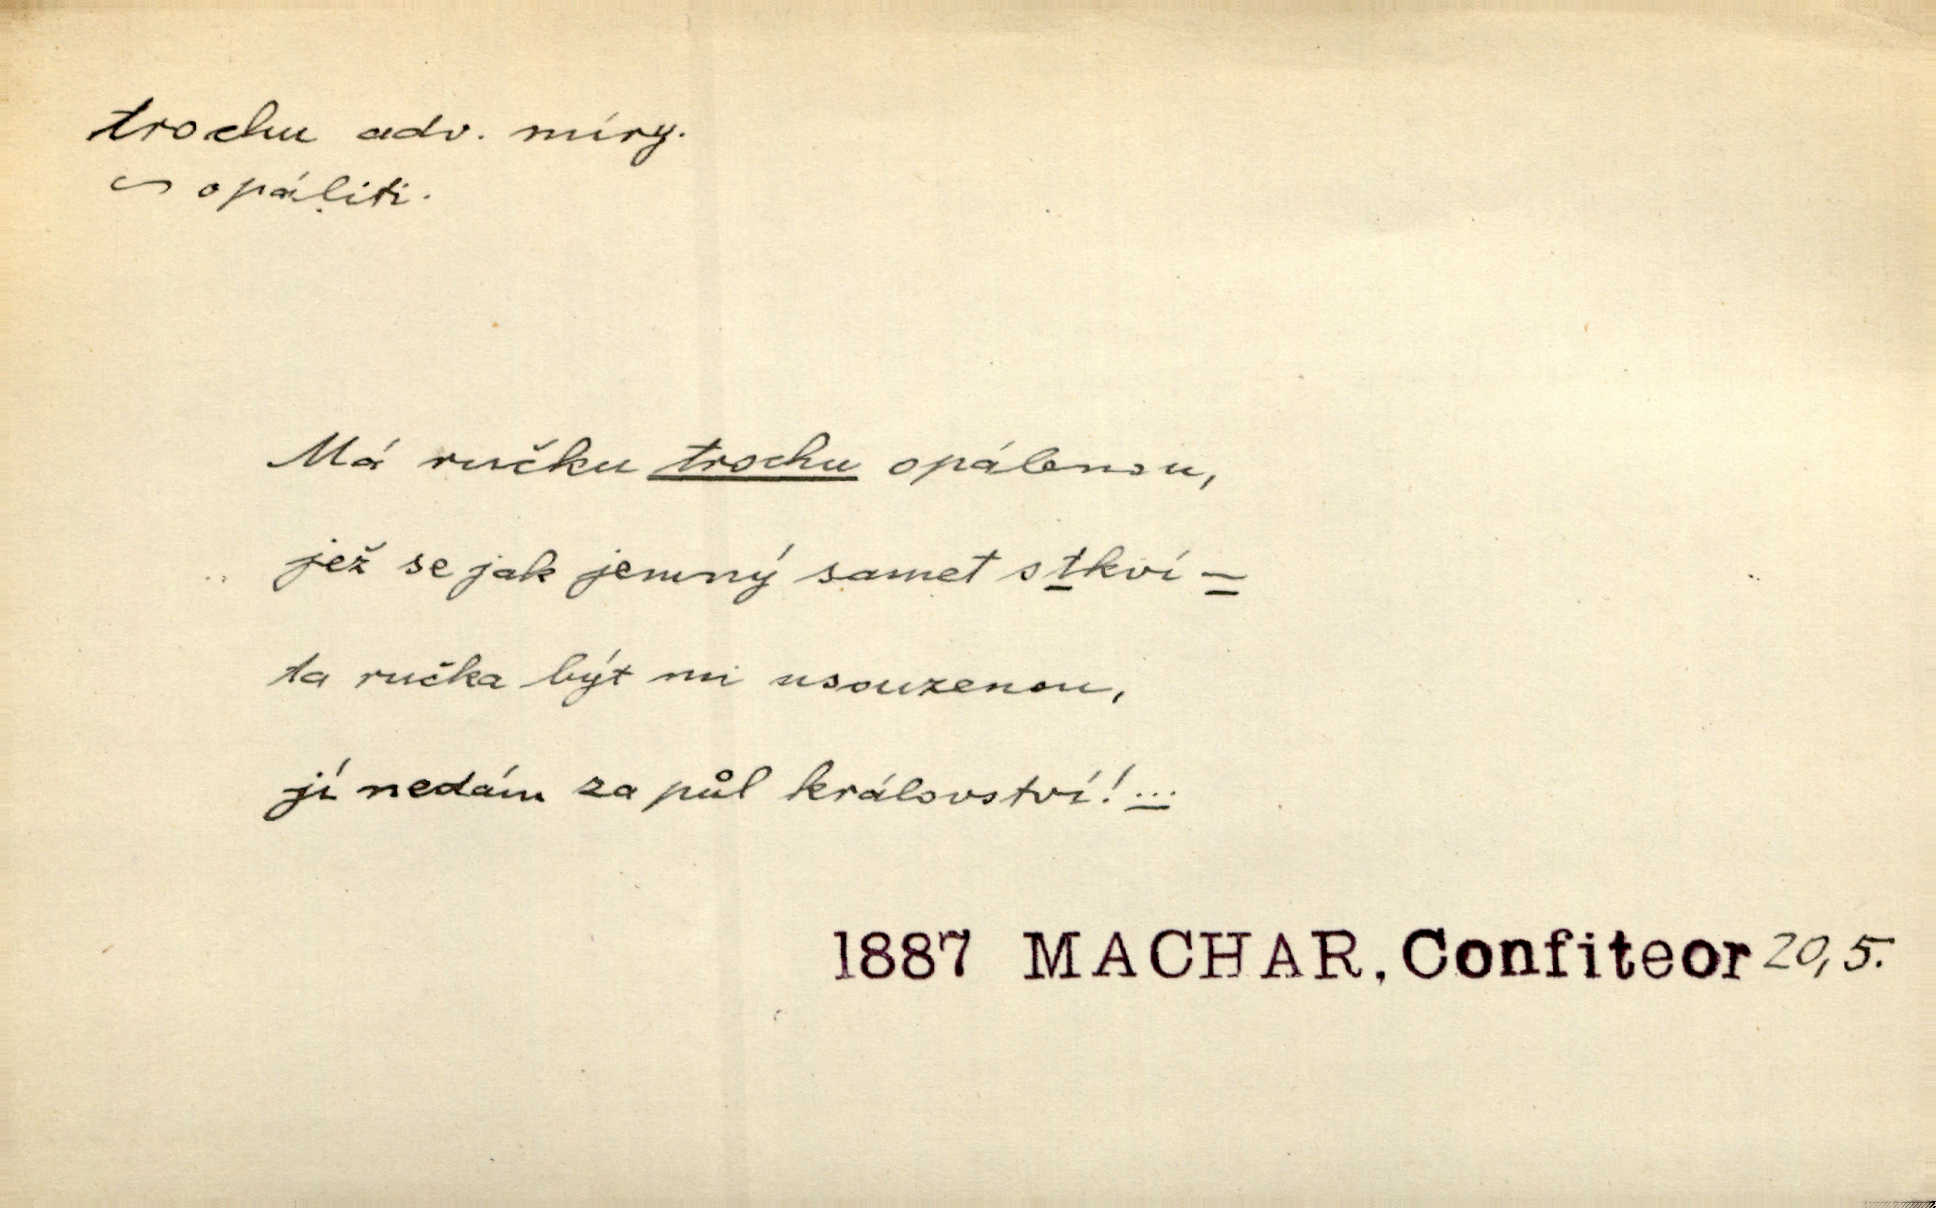 trochu adv. míry.
∽ opáliti.
Má ručku trochu opálenou,
jež se jak jemný samet stkví –
ta ručka být mi usouzenou,
jí nedám za půl království! ...
1887 MACHAR, Confiteor 20,5.